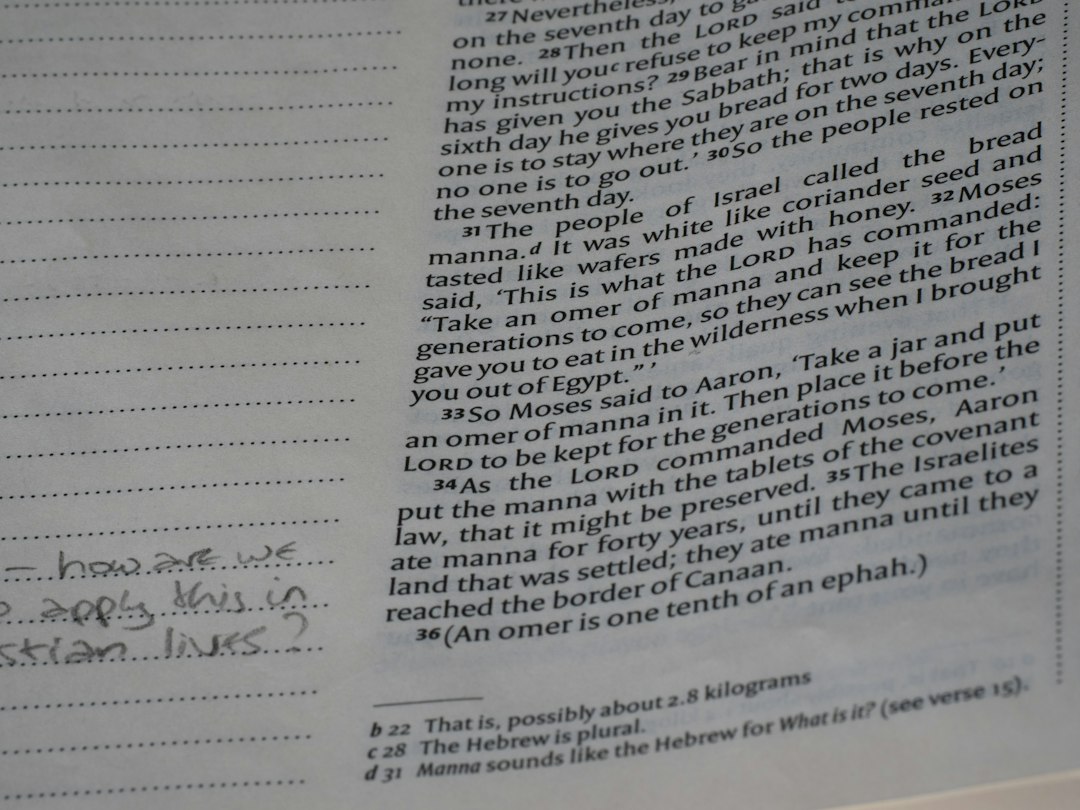 27 Nevertheless,
on the seventh day to
none. 28 Then the LORD said
long will youᶜ refuse to keep my
my instructions? 29 Bear in mind that the LORD
has given you the Sabbath; that is why on the
sixth day he gives you bread for two days. Every-
one is to stay where they are on the seventh day;
no one is to go out.’ 30 So the people rested on
the seventh day.
31 The people of Israel called the bread
manna.ᵈ It was white like coriander seed and
tasted like wafers made with honey. 32 Moses
said, ‘This is what the LORD has commanded:
“Take an omer of manna and keep it for the
generations to come, so they can see the bread I
gave you to eat in the wilderness when I brought
you out of Egypt.” ’
33 So Moses said to Aaron, ‘Take a jar and put
an omer of manna in it. Then place it before the
LORD to be kept for the generations to come.’
34 As the LORD commanded Moses, Aaron
put the manna with the tablets of the covenant
law, that it might be preserved. 35 The Israelites
ate manna for forty years, until they came to a
land that was settled; they ate manna until they
reached the border of Canaan.
36 (An omer is one tenth of an ephah.)
b 22 That is, possibly about 2.8 kilograms
c 28 The Hebrew is plural.
d 31 Manna sounds like the Hebrew for What is it? (see verse 15).
– how are we
apply this in
stian lives?